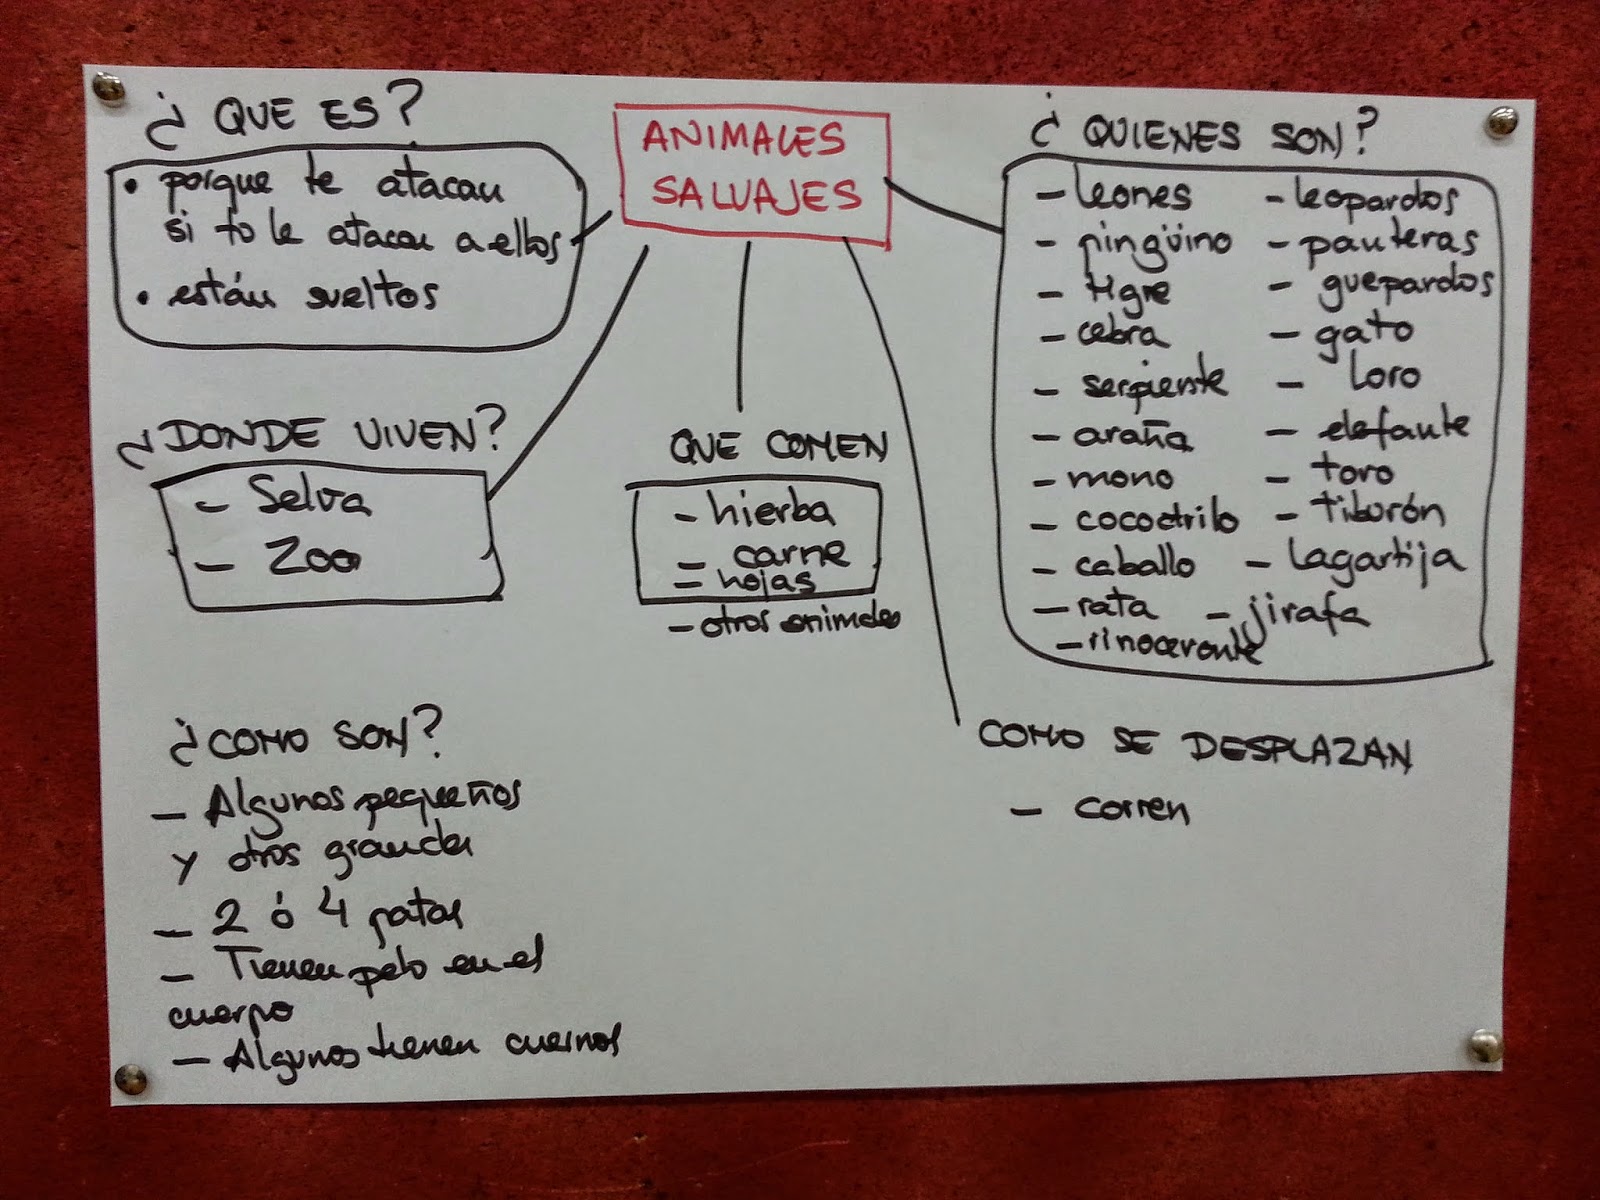 ¿QUE ES?
• porque te atacan
si to le atacan a ellos
• están sueltos
ANIMALES
SALVAJES
¿QUIENES SON?
- leones
- pingüino
- tigre
- cebra
- serpiente
- araña
- mono
- cocodrilo
- caballo
- rata
- rinoceronte
- leopardos
- panteras
- guepardos
- gato
- loro
- elefante
- toro
- tiburón
- lagartija
- jirafa
¿DONDE VIVEN?
- Selva
- Zoo
QUE COMEN
- hierba
- carne
- hojas
- otros animales
¿COMO SON?
- Algunos pequeños
y otros grandes
- 2 ó 4 patas
- Tienen pelo en el
cuerpo
- Algunos tienen cuernos
COMO SE DESPLAZAN
- corren